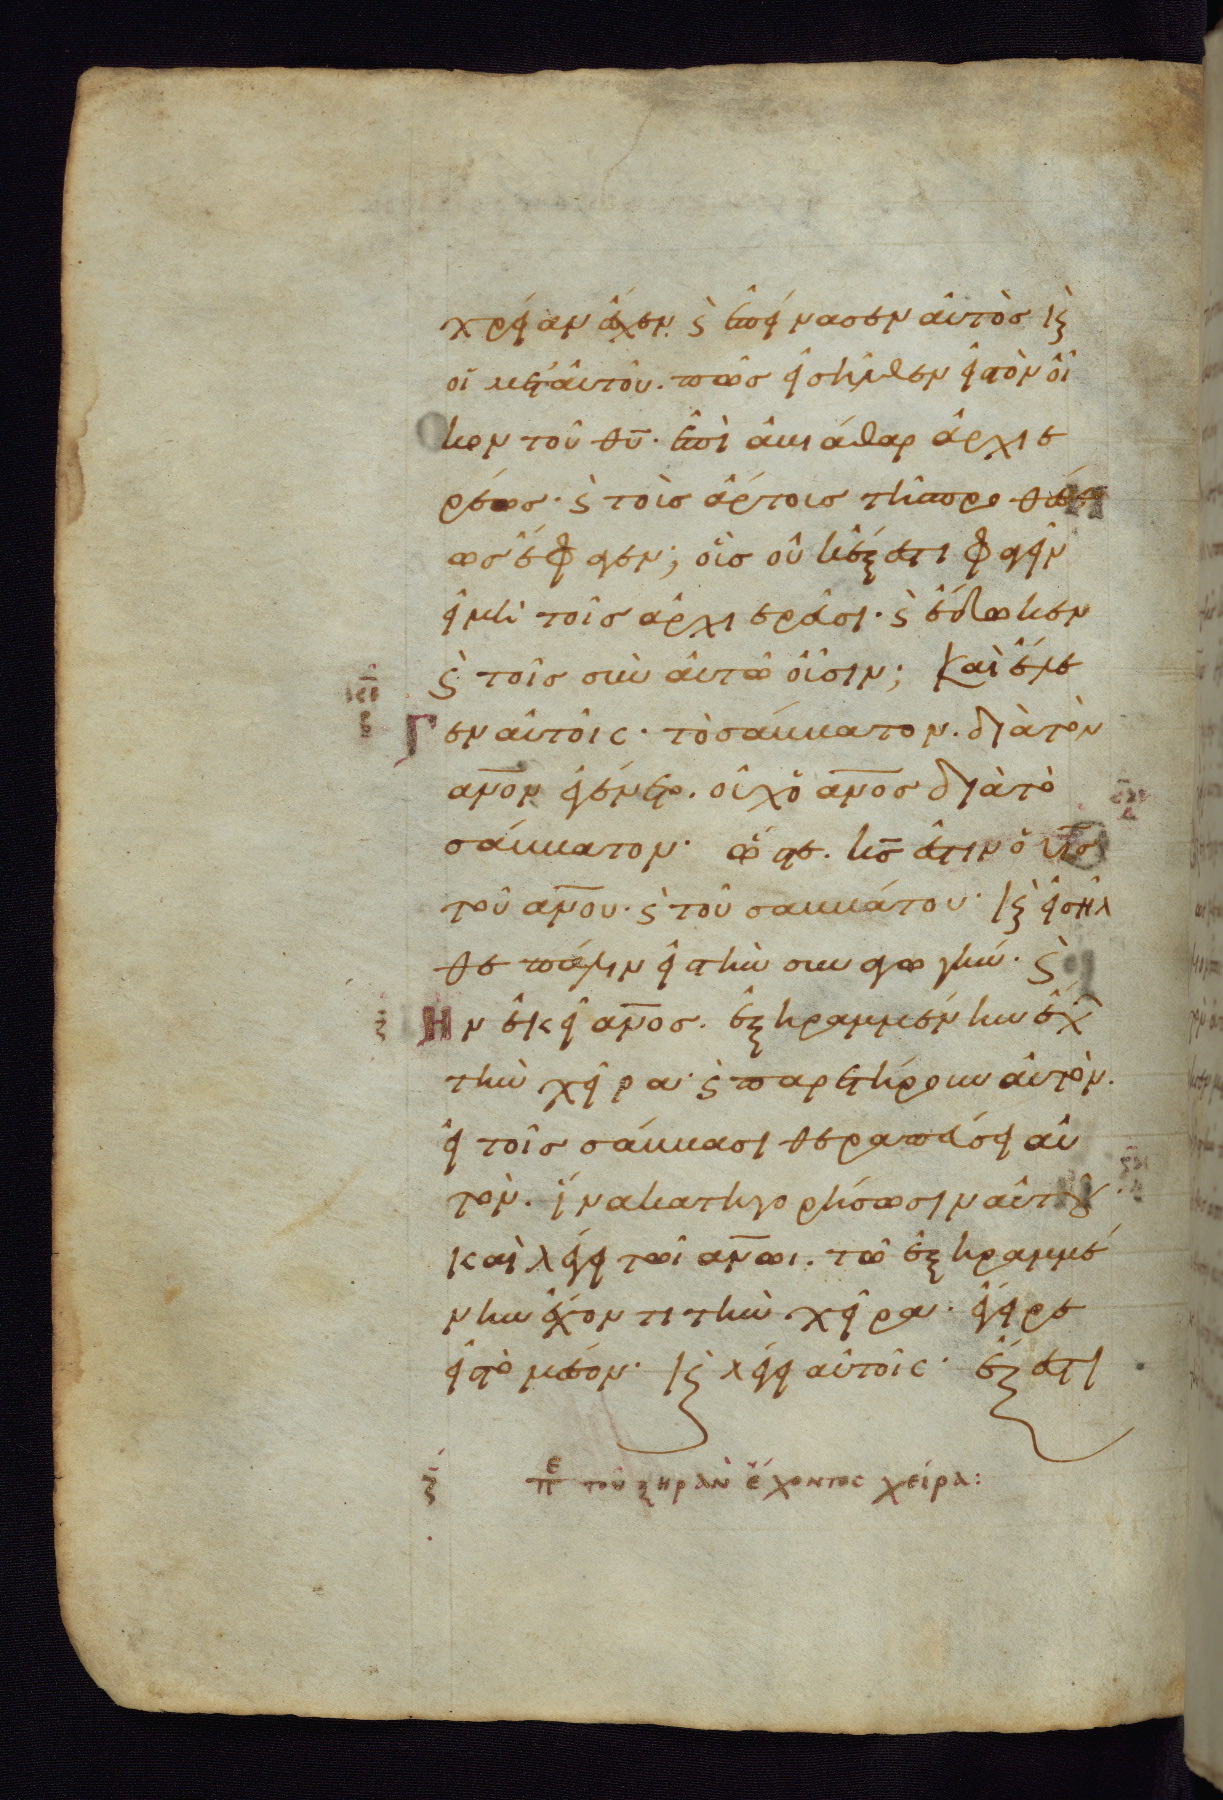 χρείαν ἔσχεν. ϛ̀ ἐπείνασεν αὐτὸς ϗ̀
οἱ μετ' αὐτοῦ. πῶς εἰσῆλθεν εἰς τὸν οἶ
κον τοῦ θῦ. ἐπὶ ἀβιάθαρ ἀρχιε
ρέως. ϛ̀ τοὺς ἄρτους τῆς προθέσε
ως ἔφαγεν; οὓς οὐκ ἔξεστι φαγεῖν
εἰ μὴ τοῖς ἀρχιερεῦσι. ϛ̀ ἔδωκεν
ϛ̀ τοῖς σὺν αὐτῶ οὖσιν; Καὶ ἔλε
Γεν αὐτοῖς. τὸ σάββατον. διὰ τὸν
ανον ἐγένετο. οὐχ ὁ ανος διὰ τὸ
σάββατον. ὥστε. κς ἐστιν ὁ υς
τοῦ ανου. ϛ̀ τοῦ σαββάτου. ϗ̀ εἰσῆλ
θε πάλιν εἰς τὴν συναγωγήν. ϛ̀
Ην ἐκεῖ ανος. ἐξηραμμένην ἔχ
τὴν χεῖρα. ϛ̀ παρετήρουν αὐτὸν.
εἰ τοῖς σάββασι θεραπεύσει αὐ
τὸν. ἵνα κατηγορήσωσιν αὐτοῦ
Καὶ λέγει τῶι ανωι. τῶ ἐξηραμμέ
νην ἔχοντι τὴν χεῖρα. ἔγειρε
εἰς τὸ μέσον. ϗ̀ λέγει αὐτοῖς. ἔξεστι
ζ πε τοῦ ξηρὰν ἔχοντος χεῖρα: